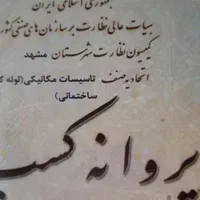 جمهوری اسلامی ایران
هیات عالی نظارت بر سازمان‌های صنفی کشور
کمیسیون نظارت شهرستان مشهد
اتحادیه صنف تاسیسات مکانیکی (لوله ک
ساختمانی)
پروانه کسب